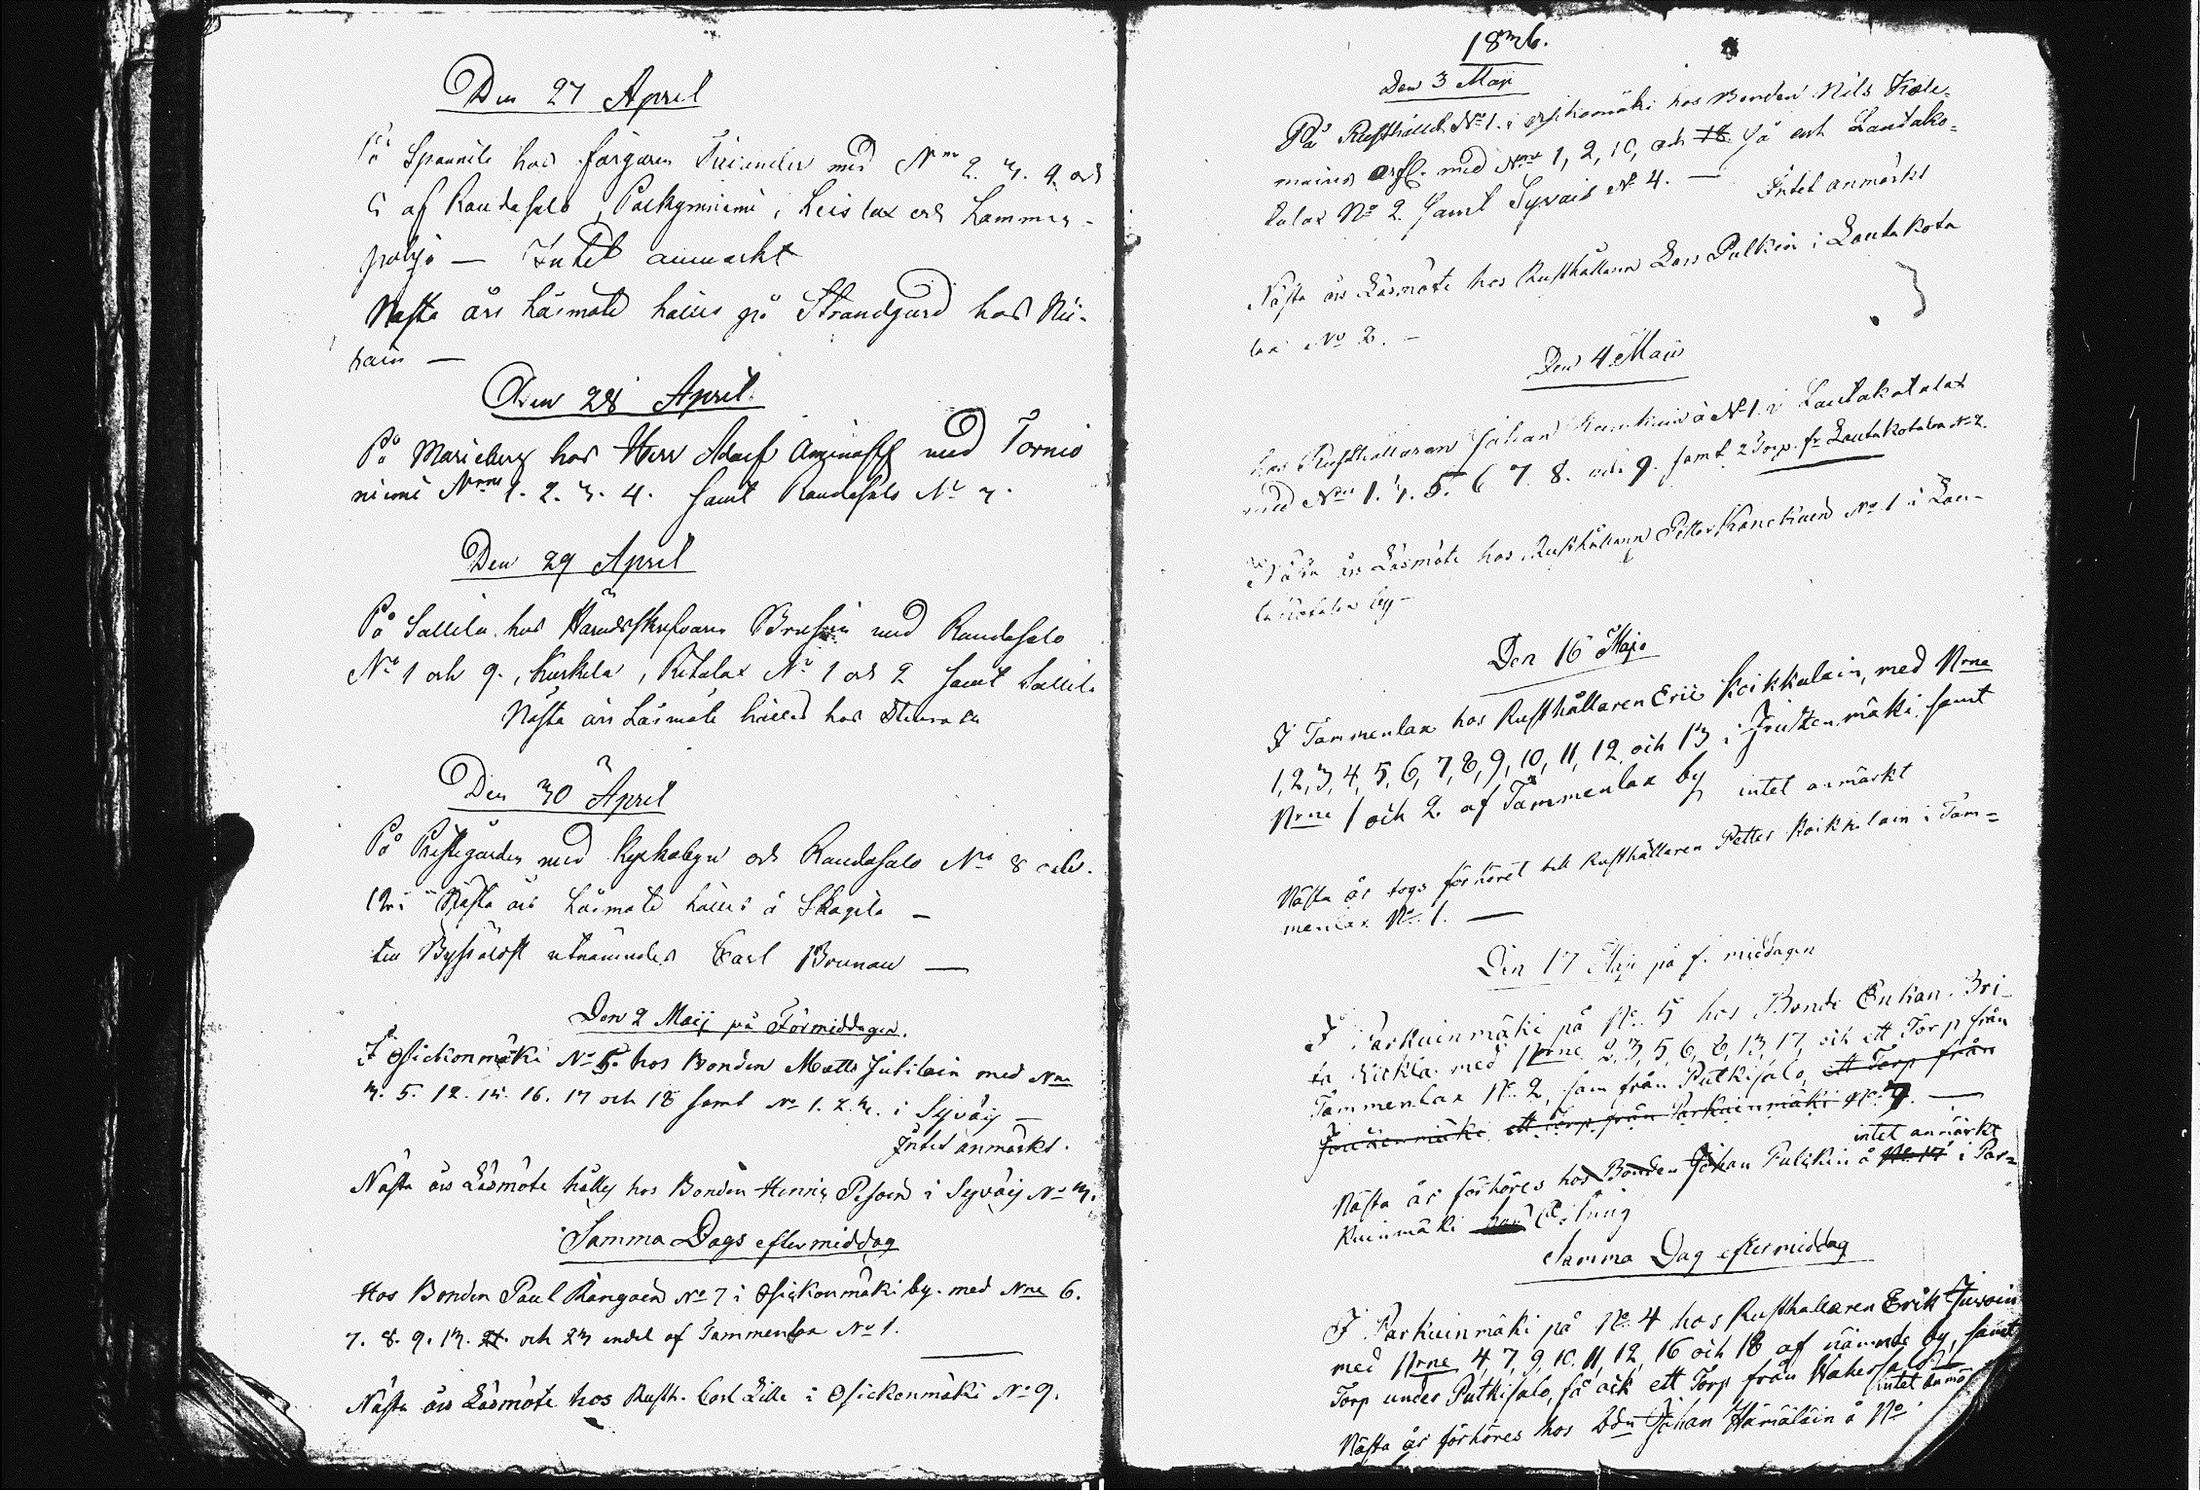 Den 27 April
På Spannila hos färgaren med N:ne 2. 3. 4. och
5 af Randasalo, och Lammas-
pohja — Intet anmärkt
Nästa års Läsmöte hålles på Strandgård hos
—
Den 28 April
På Marieberg hos Herr Adolf Aminoff med Tornio
niemi Nrne 1. 2. 3. 4. samt Randasalo No 3.
Den 29 April
På Sallila hos Häradsskrifvaren Brusin med Randasalo
No 1 och 9., Kurkela, Kitalax No 1 och 2 samt Sallila
Nästa års Läsmöte hålles hos
Den 30 April
På Prestgården med Kyrkobyn och Randasalo No 8 och
12: Nästa års Läsmöte hålles å Skogila —
till Byfsålder utnämndes Carl Brunau —
Den 2 Maij på Förmiddagen.
I Osickonmäki No 5. hos Bonden Matts Juhilain med Nrne
3. 5. 12. 15. 16. 17 och 18 samt No 1. 2. 3. i Syväis —
Intet anmärkt.
Nästa års Läsmöte hålles hos Bonden Henric Pesoin i Syväis No 3.
Samma Dags eftermiddag
Hos Bonden Paul Kangoin No 7 i Osickonmäki by. med Nrne 6.
7. 8. 9. 13. 21. och 23 endel af Tammenlax No 1.
Nästa års Läsmöte hos Rusth. Carl Lille i Osickonmäki No 9.
1836.
Den 3 Maji
På Rusthållet No 1. i Osikonmäki hos Bonden Nils
med Nrne 1, 2, 10, och 18 så och Lautako-
talax No 2. samt Syväis No 4. — Intet anmärkt
Nästa års Läsmöte hos Rusthållaren Lars Pulkin i Lautakota
lax No 2. —
Den 4 Maii
hos Rusthållaren Johan å No 1. i Lautakotalax
med Nrne 1. 3. 5. 6 7. 8. och 9. samt 2 Torp. fr. Lautakotalax No 2.
Nästa års Läsmöte hos Rusthållaren Petter No 1 i Lau-
takotalax by —
Den 16 Maji
I Tammenlax hos Rusthållaren Eric Koikkalain, med Nrne
1, 2, 3, 4, 5, 6, 7, 8, 9, 10, 11, 12 och 13 i mäki samt
Nrne 1 och 2. af Tammenlax by intet anmärkt
Nästa år togs förhöret till Rusthållaren Petter Koikkalain i Tam=
menlax No. 1. —
Den 17 Maji på f. middagen
I Parkuinmäki på No. 5 hos Bonde Enkan Bri-
ta med Nrne 2, 3, 5, 6, 8, 13, 17, och ett Torp från
Tammenlax No. 2, som från Putkisalo, ett Torp från
ett Torp från Parkuinmäki No. 7. —
intet anmärkt
Nästa år förhöres hos Bonden Johan Pulkkin å No 17 i Par=
kuinmäki hos
Samma Dag eftermiddag
I Parkuinmäki på No. 4 hos Rusthållaren Erik
med Nrne 4, 7, 9, 10. 11, 12, 16 och 18 af nämnde by, samt
Torp under Putkisalo, så ock ett Torp från
intet anmä
Nästa år förhöres hos Bdn Johan Hämäläin å No.